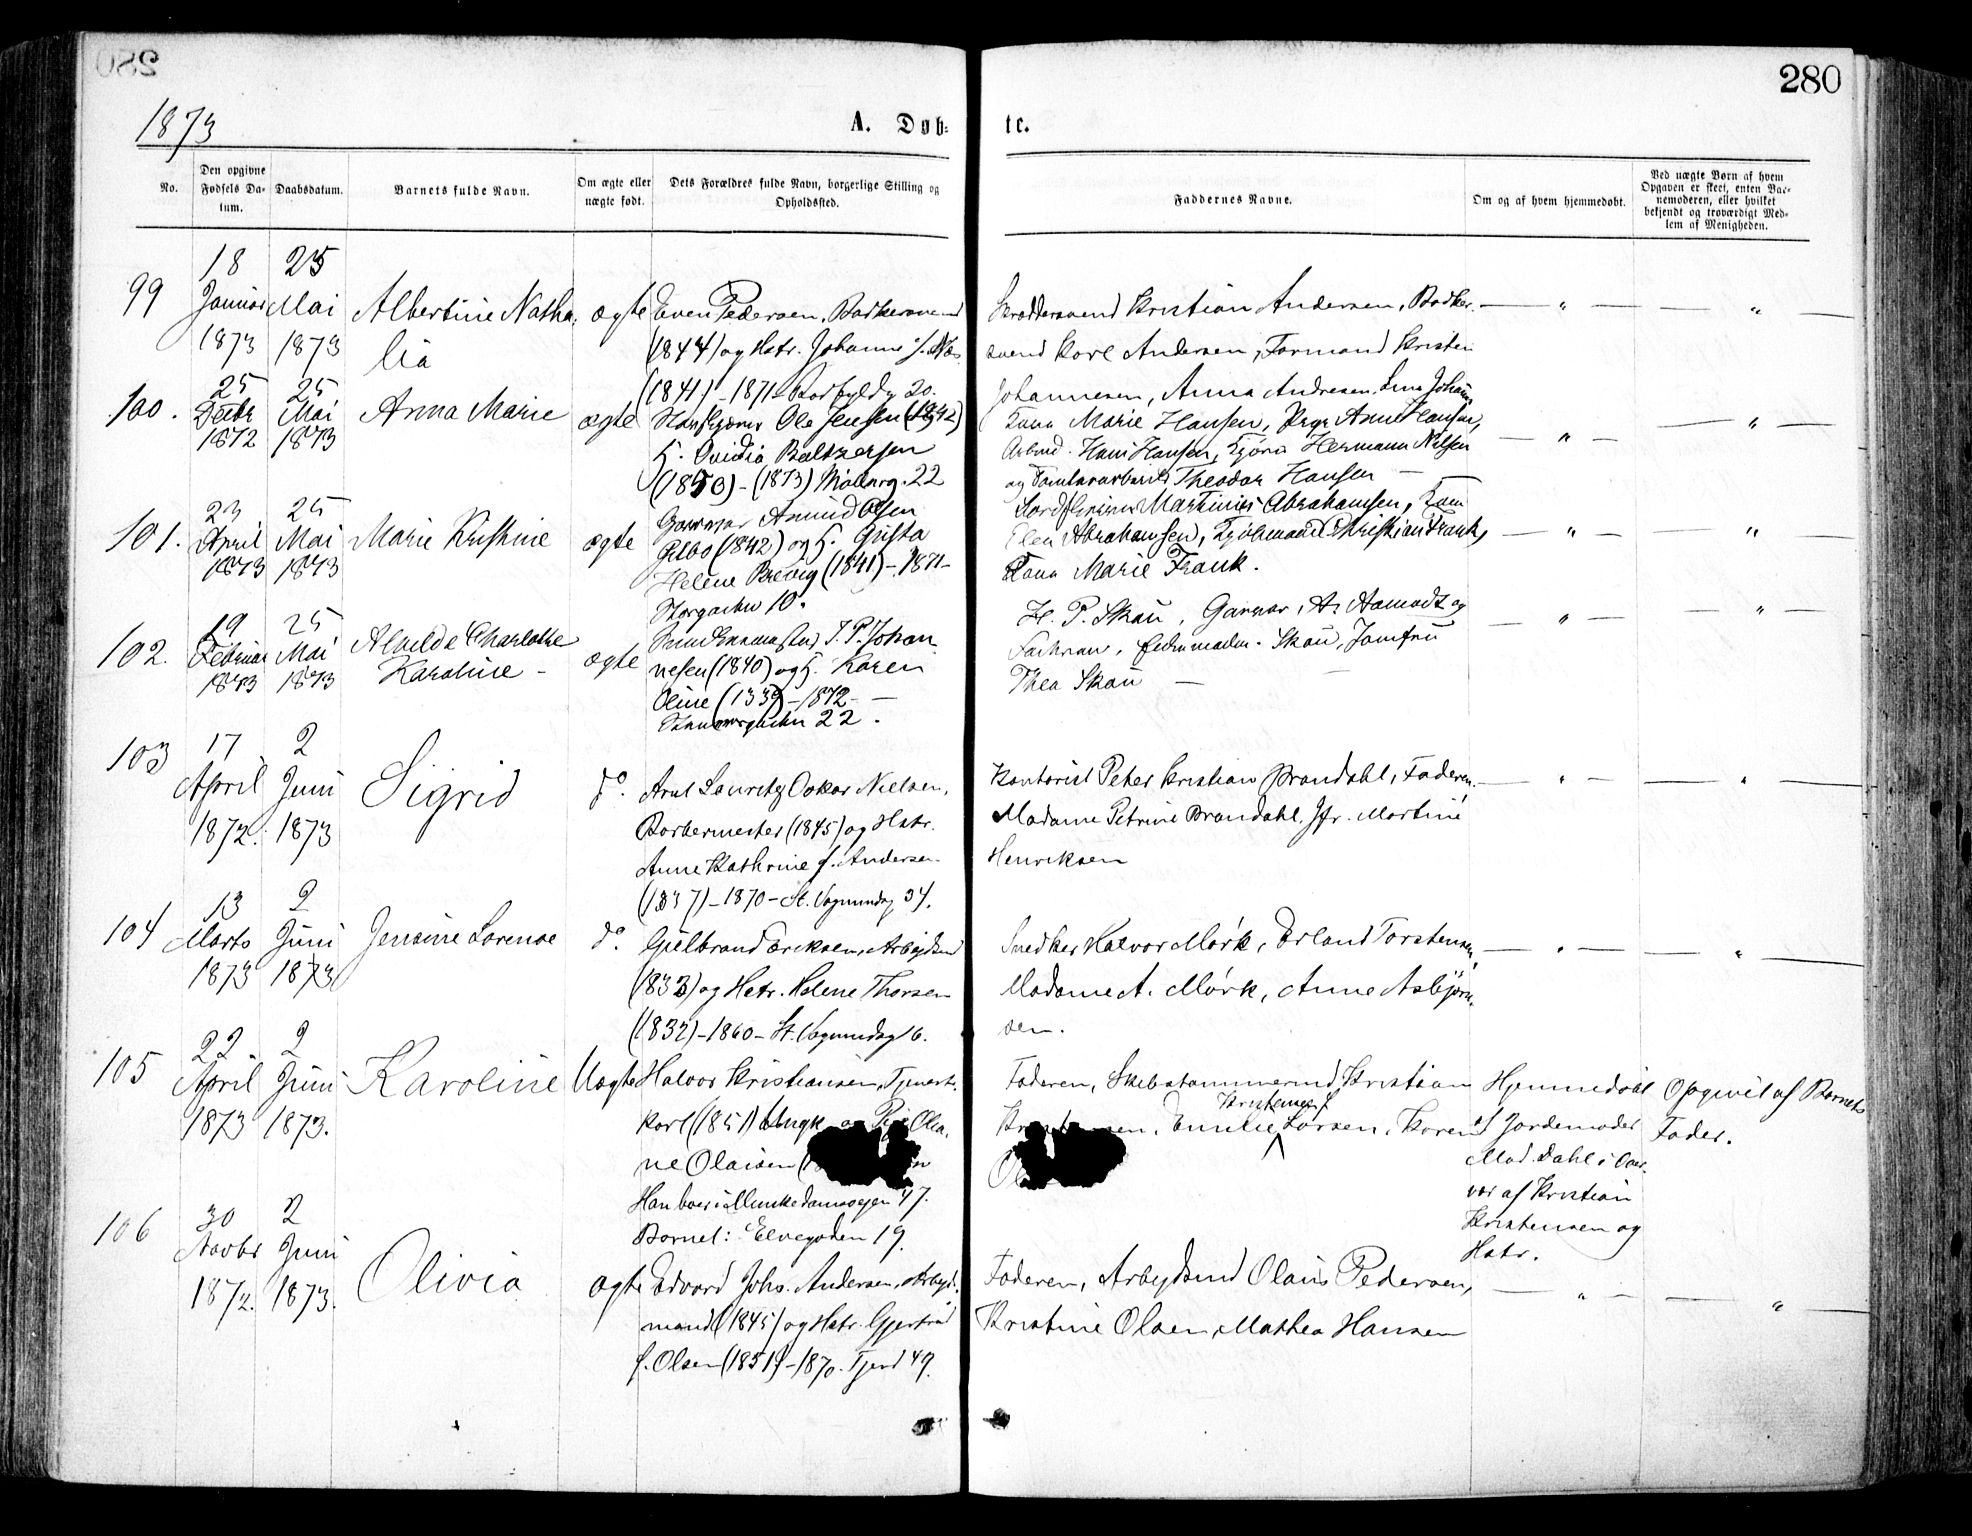 280
1873
A. Døb-
te.
No.
Den opgivne Fødsels Da-
tum.
Daabsdatum.
Barnets fulde Navn.
Om ægte eller
uægte født.
Dets Forældres fulde Navn, borgerlige Stilling og
Opholdssted.
Faddernes Navne.
Om og af hvem hjemmedøbt.
Ved uægte Børn af hvem
Opgaven er skeet, enten Bar-
nemoderen, eller hvilket
bekjendt og troværdigt Med-
lem af Menigheden.
99
18
Januar
1873
25
Mai
1873
Albertine Natha-
lia
ægte
Even Pedersen, Bødkersvend
(1844) og Hstr. Johanne f.
(1841) - 1871
Skræddersvend Kristian Andersen, Bødker-
svend Karl Andersen, Formand Kristen
Johannesen, Anna Andresen, Lina
100.
25
Decbr
1872
25
Mai
1873
Anna Marie
ægte
Ole Jensen (1842)
H. Ovidia Baltzersen
(1850) - (1873) Møllerg. 22
Kona Marie Hansen, Pige Anne Hansen,
Arbmd. Hans Hansen, Hermann Nilsen
og Theodor Hansen
101.
23
April
1873
25
Mai
1873
Marie Kristine
ægte
Garver Amund Olsen
Gilbo (1842) og H. Gusta
Helene Brevig (1841) - 1871 -
Storgaden 10.
Martinius Abrahamsen, Kone
Elen Abrahamsen, Kjøbmand Christian Frank,
Kona Marie Frank.
102.
19
Februar
1873
25
Mai
1873
Alvilde Charlotte
Karoline -
ægte
J. P. Johan
nesen (1840) og H. Karen
Oline (1839) - 1872 -
22.
H. P. Skau, Garver, A. Aamodt og
Fadren, Skau, Jomfru
Thea Skau
103
17
April
1872.
2
Juni
1873
Sigrid
do.
Axel Lauritz Oskar Nielsen,
Barbermester (1845) og Hstr.
Anne Kathrine f. Andersen
(1837) - 1870 - St. Vognmdsg 34.
Kontorist Peter Kristian Brandahl, Faderen,
Madame Petrine Brandahl, Jfr. Martine
Henriksen
104
13
Marts
1873
2
Juni
1873
Jensine Lorense
do.
Gulbrand Eriksen, Arbejdsmd
(1833) og Hstr. Helene Thorsen
(1832) - 1860 - St. Vognmdsg 16.
Snedker Halvor Mørk, Erland Torstensen,
Madame A. Mørk, Anne Asbjørn-
sen.
105
22
April
1873
2
Juni
1873.
Karoline
Uægte
Halvor Kristiansen, Tjeneste-
karl (1851) Ungk. og Pige Olea-
ne Olaisen
Han boer i Munkedamsveien 47.
Barnet: Elvegaden 19.
Faderen, Skibstømmermd. Kristian
Kristensen, Emilie Kristensen f. Larsen, Karen
Hjemmedøbt
af Jordemoder
Mad. Dahl i Over-
vær af Kristian
Kristensen og
Hstr.
Opgivet af Barnets
Fader.
106
30
Novbr
1872.
2
Juni
1873.
Olivia
ægte
Edvard Johs. Andersen, Arbejds-
mand (1845) og Hstr. Gjertrud
f. Olsen (1851) - 1870. Tjuvh 49.
Faderen, Arbejdsmd Olaus Pedersen,
Kristine Olsen, Mathea Hansen